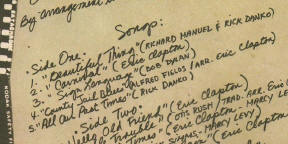 By arrangement
Songs:
Side One:
1. "Beautiful Thing" (RICHARD MANUEL & RICK DANKO)
2. "Carnival" (Eric Clapton)
3. "Sign Language" (BOB DYLAN)
4. "County Jail Blues" (ALFRED FIELDS/ARR. Eric Clapton)
5. "All Our Past Times" (RICK DANKO)
Side Two:
Hello Old Friend" (Eric Clapton)
Trouble" (OTIS RUSH/TRAD. ARR. Eric
Times" (Eric Clapton - MARCY LE
SIMMS - MARCY LEVY)
Eric Clapton
KODAK SAFETY F